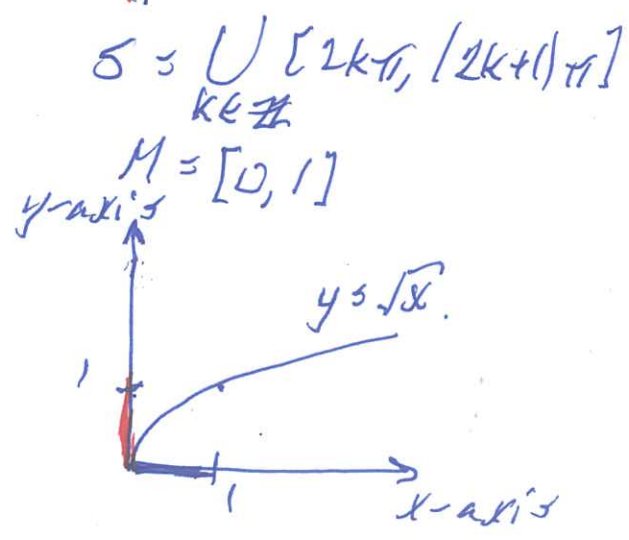 S = ⋃ [2kπ, (2k+1)π]
k∈ℤ
M = [0, 1]
y-axis
y = √x.
1
1
x-axis